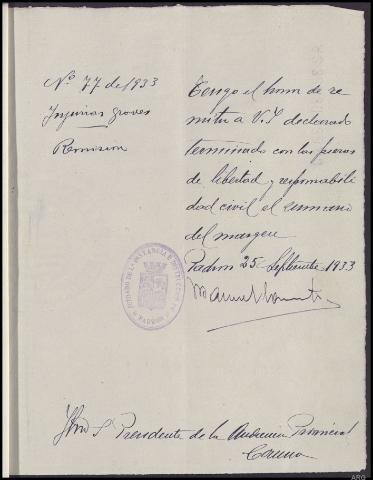 Nº 77 de 1933
Injurias graves
Remision
Tengo el honor de re
mitir a V.I. declarado
terminado con las piezas
de libertad y responsabili
dad civil el sumario
del margen
Padron 25 Septiembre 1933
JUZGADO DE 1ª INSTANCIA E INSTRUCCION
PADRON
Ilmo Sr Presidente de la Audiencia Provincial
Coruña
ARG